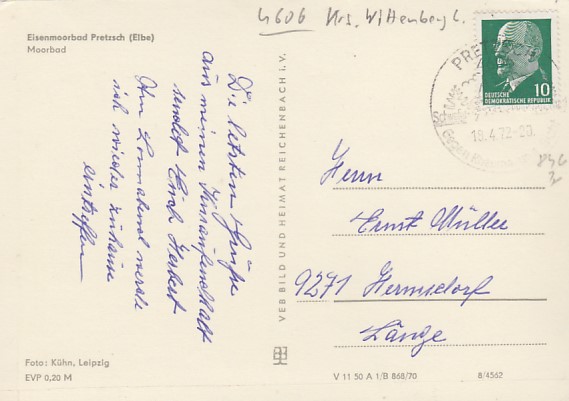 4606 Krs. Wittenberg L.
Eisenmoorbad Pretzsch (Elbe)
Moorbad
Die letzten Grüße
aus meinen Kuraufenthalt
sendet Euch Herbert
Am Sonnabend werde
ich wieder zuhause
eintreffen
Foto: Kühn, Leipzig
EVP 0,20 M
VEB BILD UND HEIMAT REICHENBACH i. V.
PRETZSCH
18.4.72-20
10
DEUTSCHE
DEMOKRATISCHE REPUBLIK
Herrn
Ernst Müller
9271 Hermsdorf
Länge
V 11 50 A 1/B 868/70
8/4562